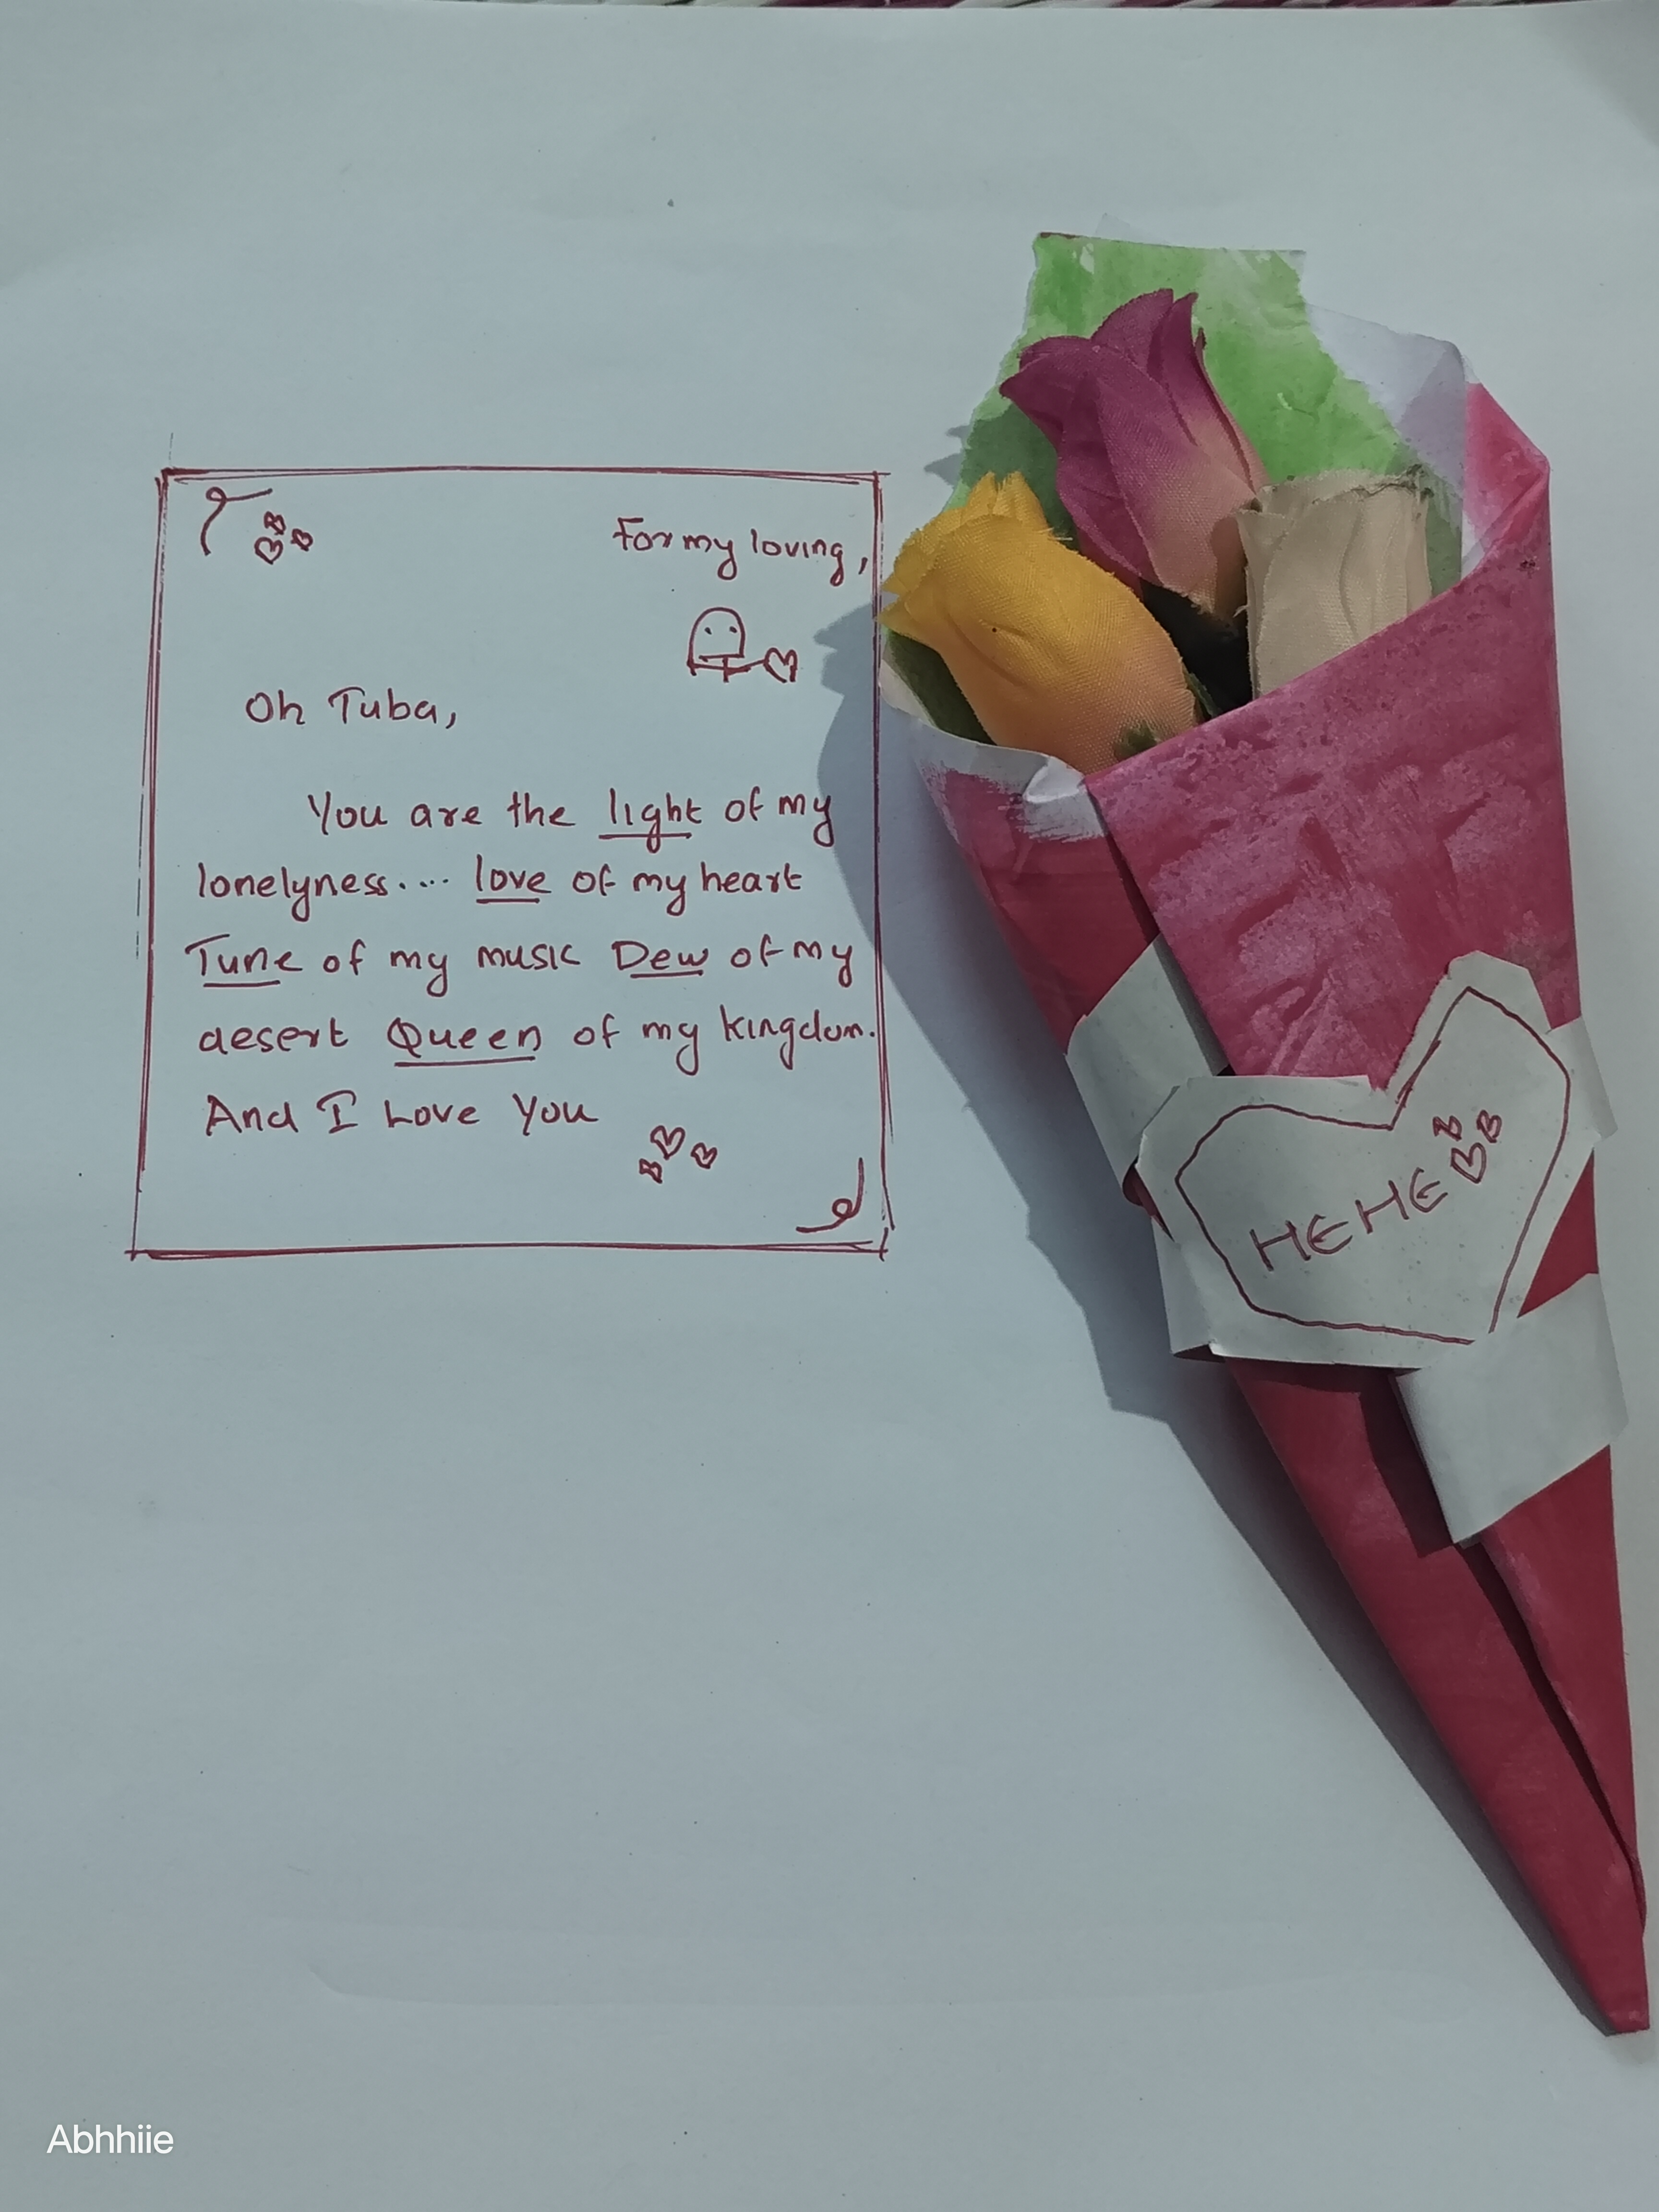 For my loving,
Oh Tuba,
You are the light of my
lonelyness.... love of my heart
Tune of my music Dew of my
desert Queen of my kingdom.
And I Love You
HEHE
Abhhiie